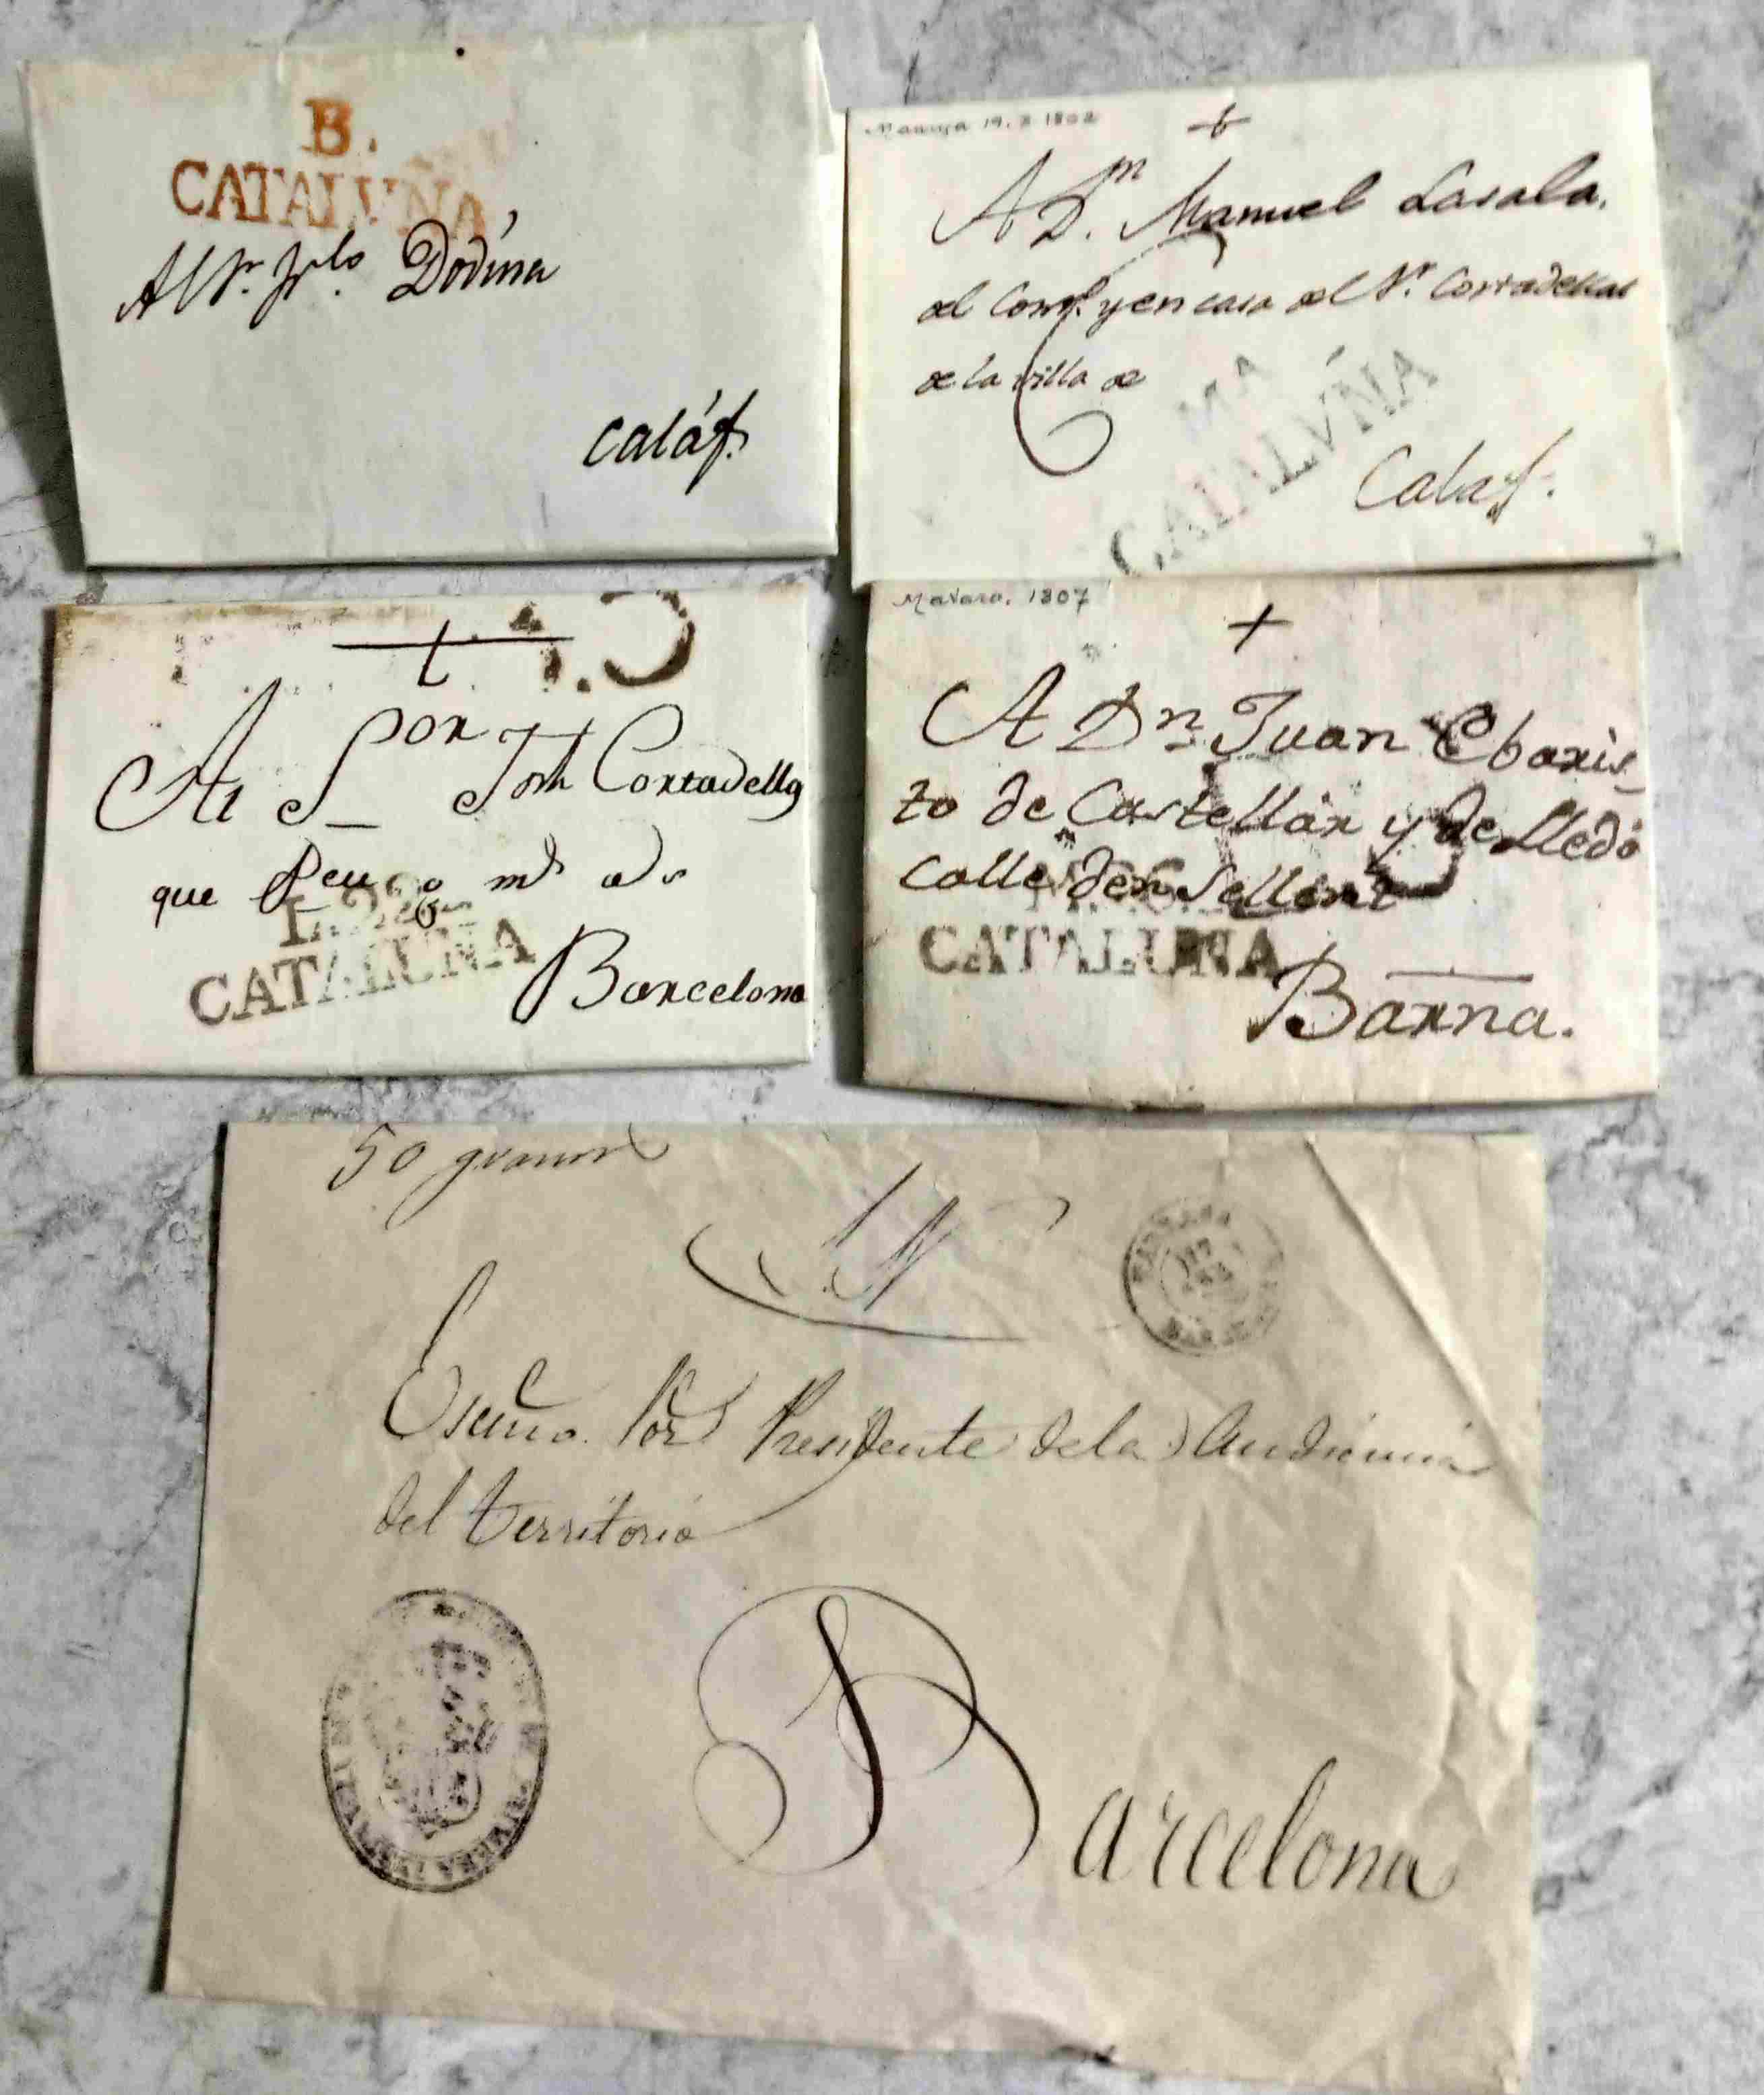 B.
CATALVÑA
Al Sr. Dodina
Caláf.
19. 3 1802
+
A Dn. Manuel Lasala.
del y en casa del Sr. Cortadellas
de la villa de
MA
CATALVÑA
Calaf.
+
Al Sor Cortadellas
que
CATALUÑA
Barcelona
Mataro. 1807
+
A Dn Juan Ebaris
to de Castellar y de Lledó
Calle den Sellent
CATALUÑA
Barna.
50 gramos
S N
17
Excmo. Sor Presidente de la Audiencia
del territorio
Barcelona